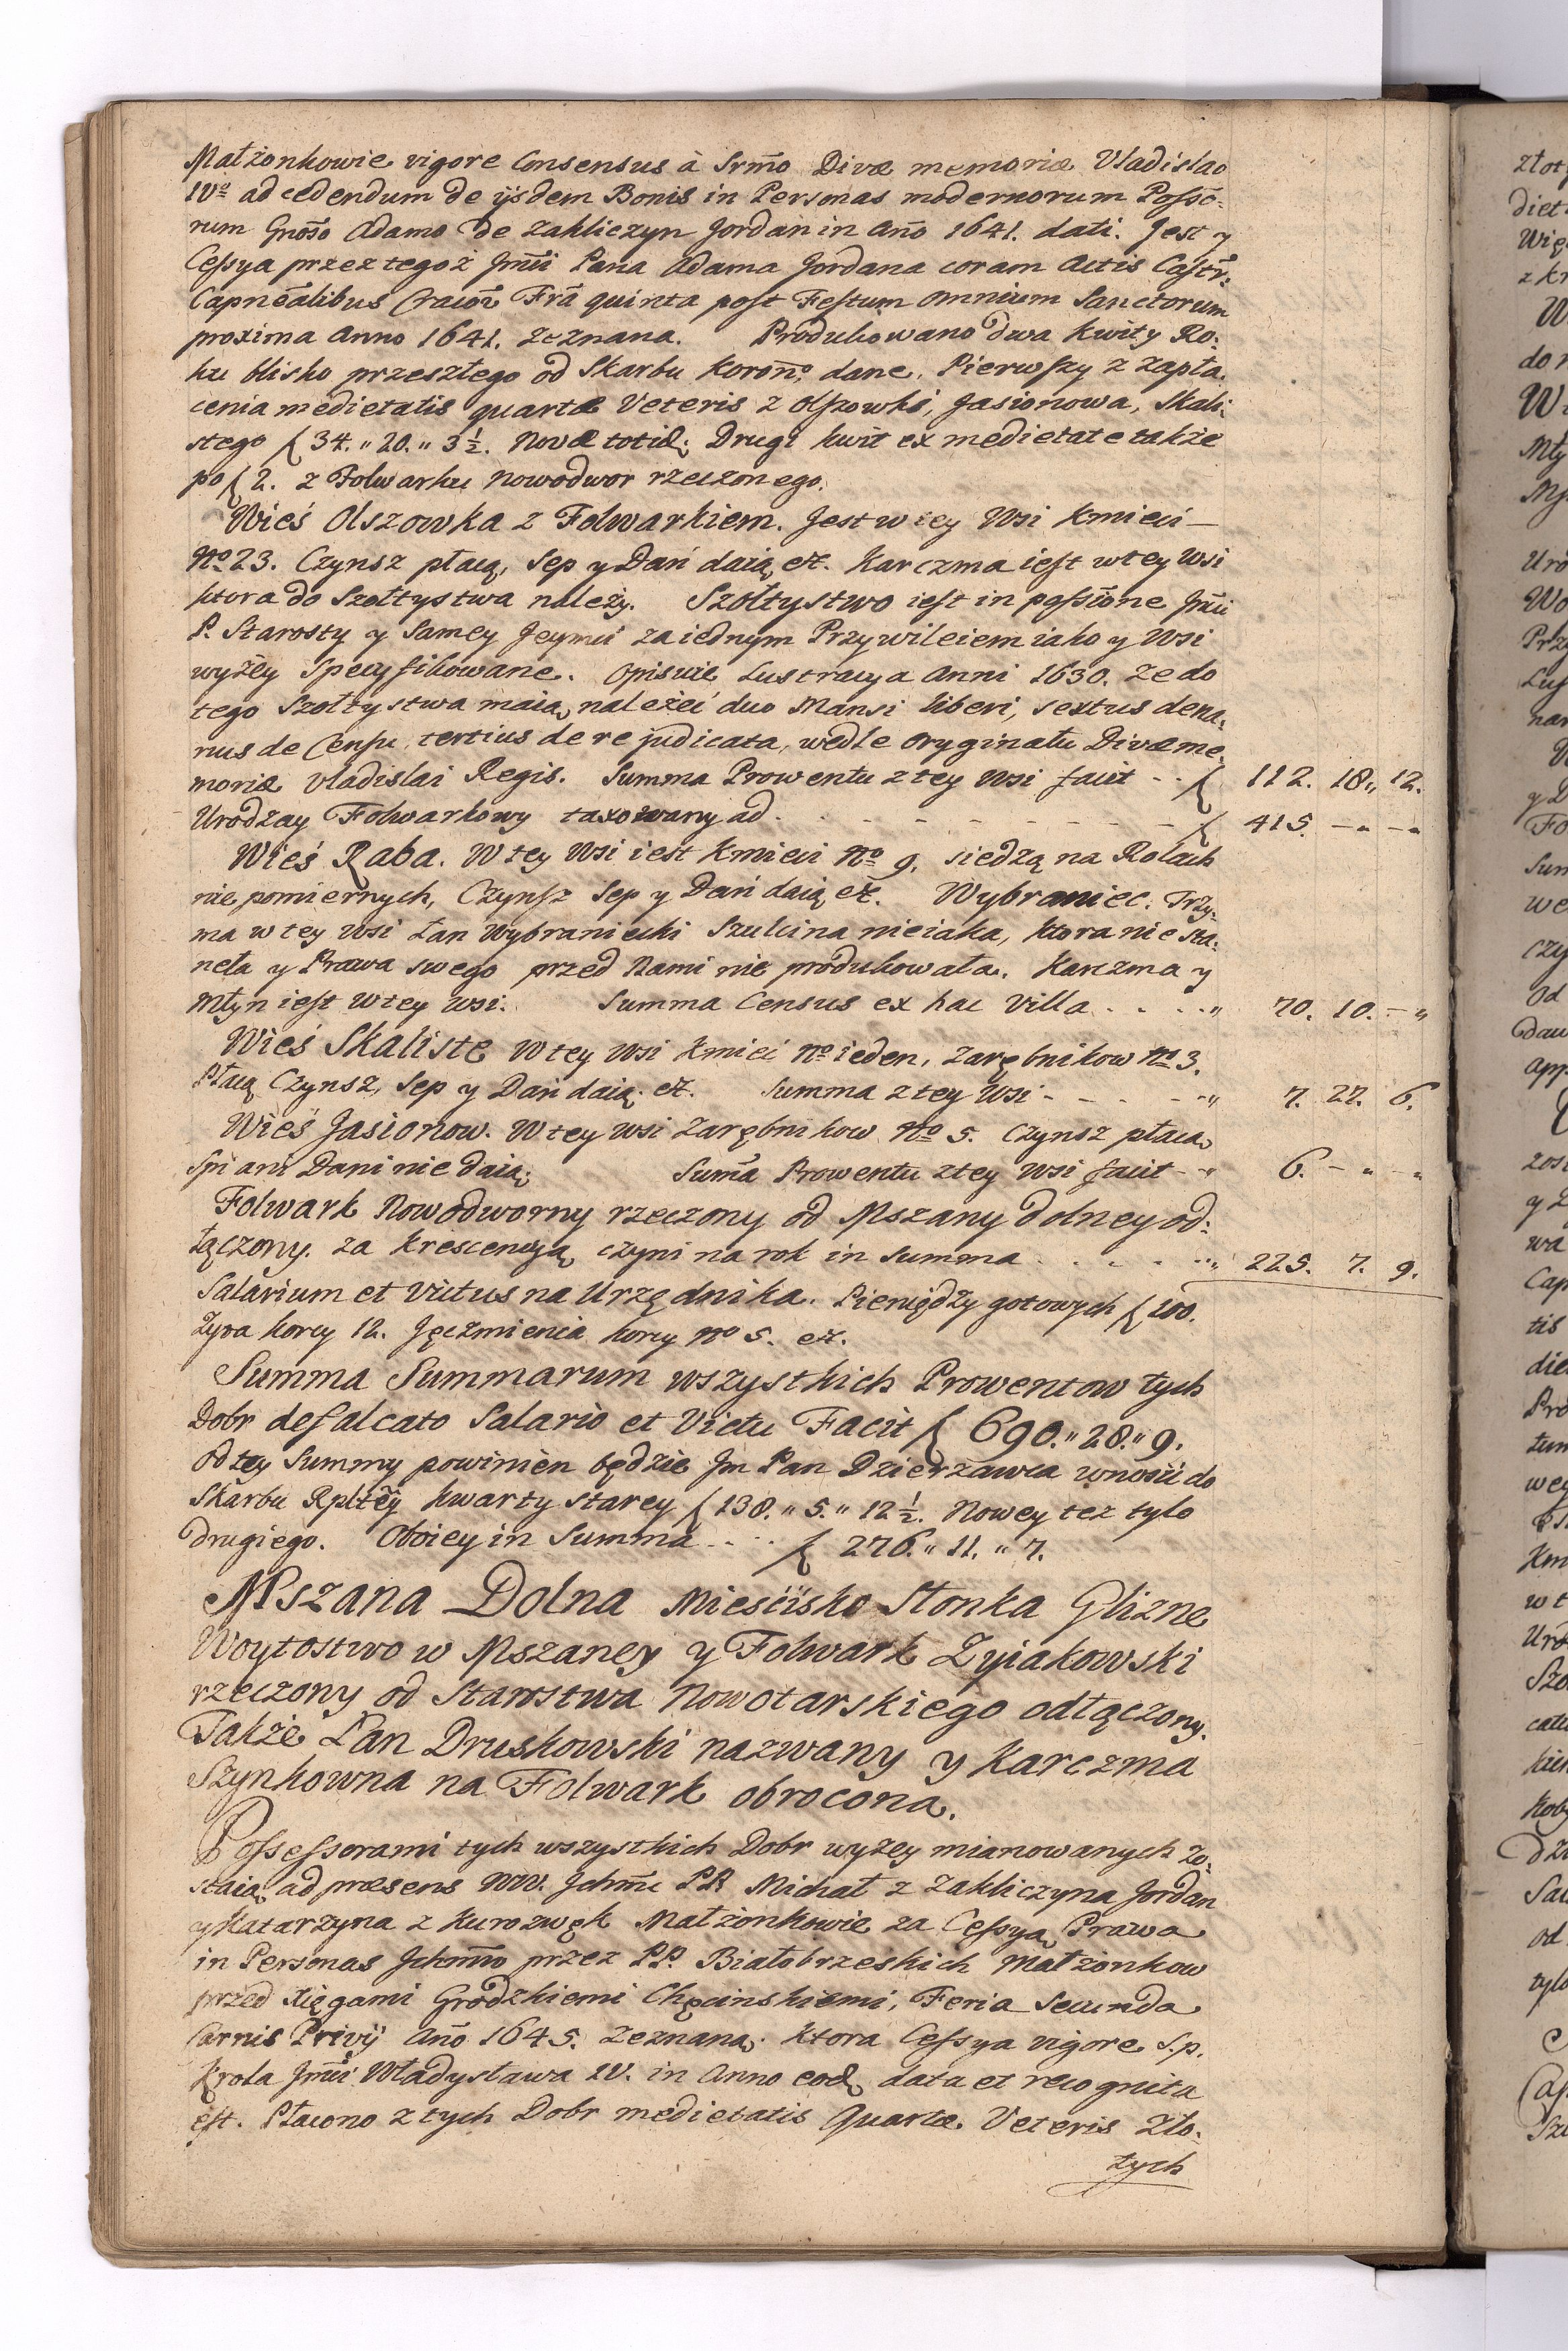 Małżonkowie vigore Consensus à Srm̃o Divæ memoriæ Vladislao
IVo ad cedendum de ijsdem Bonis in Personas modernorum Possc̃-
rum Gnõso Adamo de Zakliczyn Jordan in Año 1641. dati. Jest y
Cessya przez tegoż Jm̃ci Pana Adama Jordana coram Actis Castr̃:
Capneãlibus Cracoñ Frã quinta post Festum Omnium Sanctorum
proxima Anno 1641. zeznana. Produkowano dwa Kwity Ro:
ku blisko przeszłego od Skarbu Koroño dane. Pierwszy z zapła:
cenia medietatis quartæ Veteris z Olszowki, Jasionowa, Skali:
stego ƒ 34. „ 20. „ 3 ½. Novæ totid; Drugi kwit ex medietate także
po ƒ 2. z Folwarku Nowodwor rzeczonego.
Wieś Olszowka z Folwarkiem. Jest w tey Wsi Kmieci —
No 23. Czynsz płacą, Sep y Dań daią etc. Karczma iest w tey Wsi
ktora do Szołtystwa należy. Szołtystwo iest in possione Jm̃ci
P. Starosty y Samey Jeymci za iednym Przywileiem iako y Wsi
wyżey Specyfikowane. Opisuie Lustracya Anni 1630. Ze do
tego Szołtystwa maią należeć duo Mansi liberi, sextus dena:
rius de Censu, tertius de re judicata, wedle Oryginału Divæ me:
moriæ Vladislai Regis. Summa Prowentu z tey Wsi facit - - ƒ 112. 18 „ 12.
Urodzay Folwarkowy taxowany ad . - - - - - - - - ƒ 415. - „ - „
Wieś Raba. W tey Wsi iest Kmieci No 9. siedzą na Rolach
nie pomiernych, Czynsz Sep y Dań daią etc. Wybraniec. Trzy:
ma w tey Wsi Łan Wybraniecki Szulcina nieiaka, ktora nie sta:
neła y Prawa swego przed Nami nie produkowała. Karczma y
Młyn iest w tey Wsi. Summa Census ex hac Villa . . . . „ 70. 10. - „
Wieś Skaliste W tey Wsi Kmieć No ieden, Zarębnikow No 3.
Płacą Czynsz, Sep y Dań daią etc. Summa z tey Wsi - - - - - „ 7. 27. 6.
Wieś Jasionow. W tey Wsi Zarębnikow No 5. Czynsz płacą
Spi ani Dani nie daią; Sum̃a Prowentu z tey Wsi facit - „ 6. - „ - „
Folwark Nowodworny rzeczony od Mszany dolney od:
łączony. za krescencyą czyni na rok in Summa . . . . . „ 225. 7. 9.
Salarium et Victus na Urzędnika. Pieniędzy gotowych ƒ 100.
Żyta korcy 12. Jęczmienia korcy No 5. etc.
Summa Summarum wszystkich Prowentow tych
Dobr defalcato Salario et Victu Facit ƒ 690. „ 28. „ 9.
Od tey Summy powinien będzie Jm Pan Dzierzawca wnosić do
Skarbu Rpltey̆ Kwarty starey ƒ 138. „ 5. „ 12 ½. Nowey też tylo
drugiego. Oboiey in Summa - . . . ƒ 276. „ 11. „ 7.
Mszana Dolna Mieścisko Słonka Glizne
Woytostwo w Mszaney y Folwark Zyiakowski
rzeczony od Starostwa Nowotarskiego odłączony.
Także Łan Druskowski nazwany y Karczma
Szynkowna na Folwark obrocona.
Possessorami tych wszystkich Dobr wyżey mianowanych zo:
staią ad præsens WW. Ichm̃c PP. Michał z Zakliczyna Jordan
y Katarzyna z Kurozwęk Małżonkowie za Cessyą Prawa
in Personas Ichm̃o przez P.P. Białobrzeskich Małżonkow
przed Xięgami Grodzkiemi Chęcinskiemi, Feria Secunda
Carnis Privij Año 1645. Zeznaną. Ktora Cessya vigore S.p.
Krola Jm̃ci Władysława IV. in Anno eod, data et recognita
est. Płacono z tych Dobr medietatis Quartæ Veteris Zło:
tych